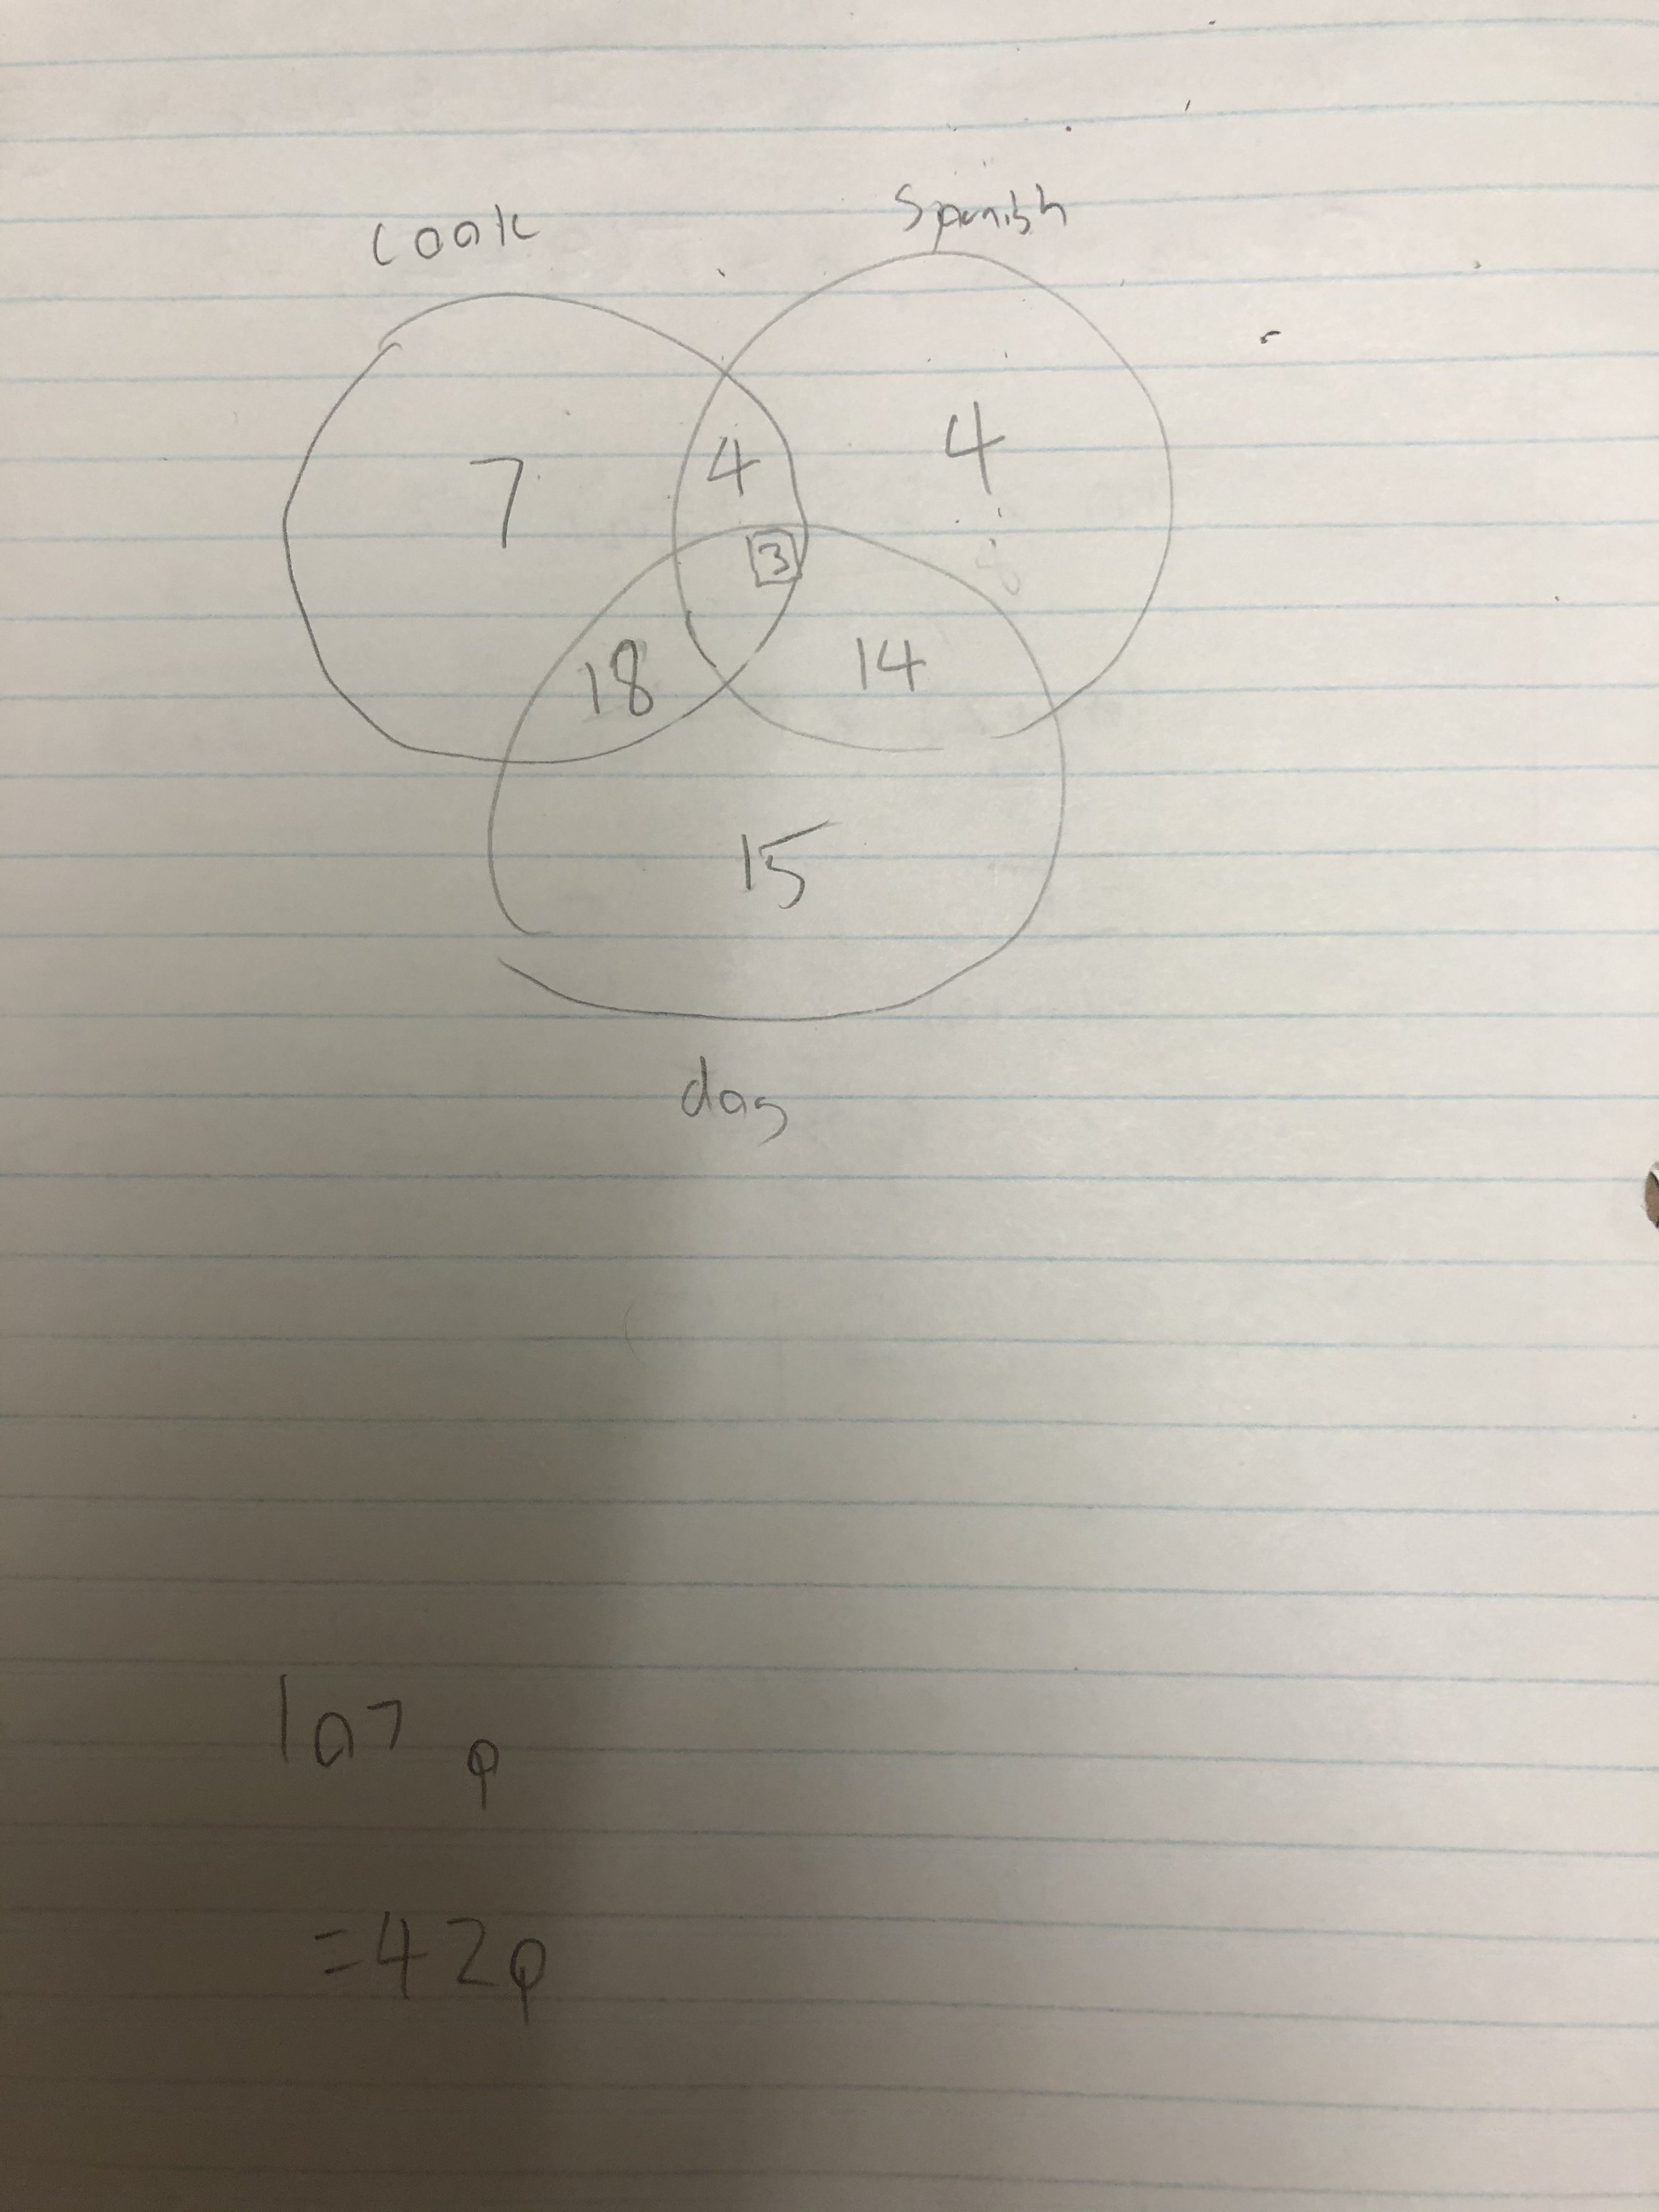 cook
Spanish
7
4
4
3
18
14
15
dog
107 φ
=42φ